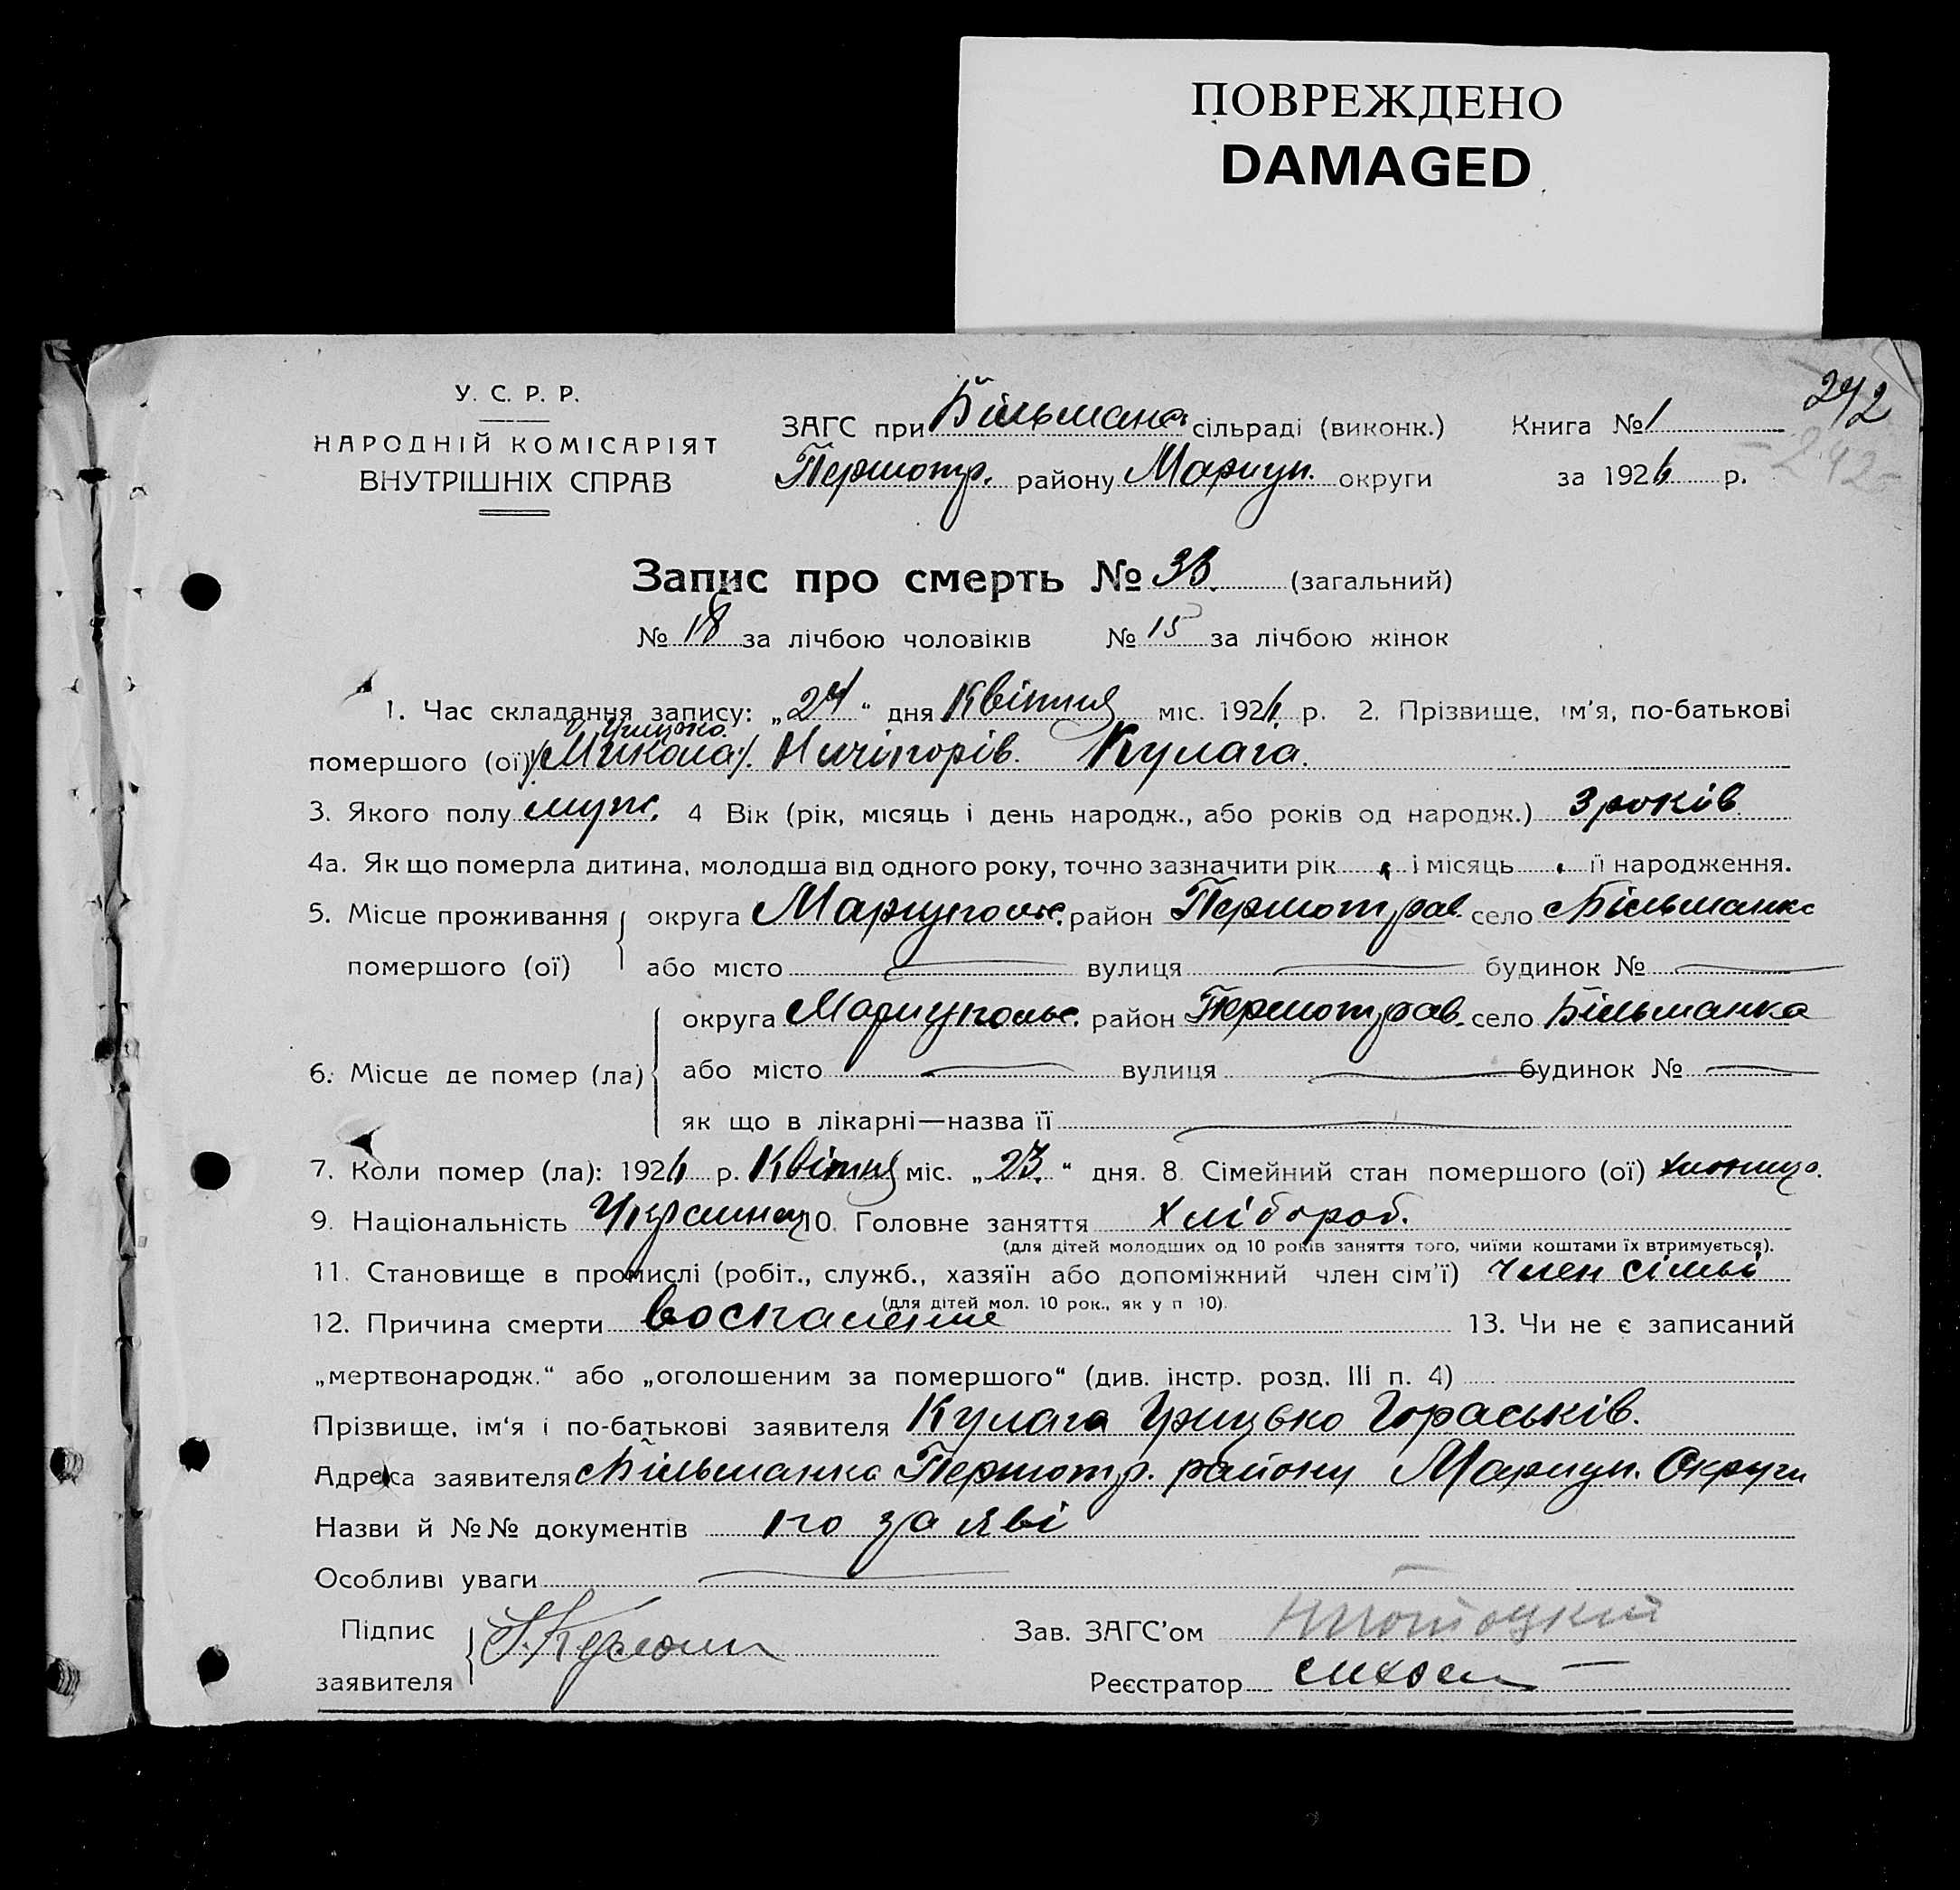 ПОВРЕЖДЕНО
DAMAGED
242
У. С. Р. Р.
НАРОДНІЙ КОМІСАРІЯТ
ВНУТРІШНІХ СПРАВ
ЗАГС при Більманс. сільраді (виконк.) Книга № 1
- 242 -
Першотр. району Мариуп. округи за 1926 р.
Запис про смерть № 33. (загальний)
№ 18 за лічбою чоловіків № 15 за лічбою жінок
1. Час складання запису: „24“ дня Квітня міс. 1926 р. 2. Прізвище, ім’я, по-батькові
Грицько.
помершого (ої) /Микола/. Ничіпорів. Кулага.
3. Якого полу муж. 4 Вік (рік, місяць і день народж., або років од народж.) 3 років
4а. Як що померла дитина, молодша від одного року, точно зазначити рік і місяць її народження.
5. Місце проживання округа Мариупольс. район Першотрав. село Більманка
помершого (ої) або місто вулиця будинок №
округа Мариупольс. район Першотрав. село Більманка
6. Місце де помер (ла) або місто вулиця будинок №
як що в лікарні—назва її
7. Коли помер (ла): 1926 р. Квітня міс. „23.“ дня. 8. Сімейний стан помершого (ої)
9. Національність Украинец 10. Головне заняття хлібороб.
(для дітей молодших од 10 років заняття того, чиїми коштами їх втримується).
11. Становище в промислі (робіт., служб., хазяїн або допоміжний член сім’ї) член сімьі
(для дітей мол. 10 рок., як у п 10).
12. Причина смерти воспаление 13. Чи не є записаний
„мертвонародж.“ або „оголошеним за помершого“ (див. інстр. розд. III п. 4)
Прізвище, ім‘я і по-батькові заявителя Кулага Грицько Гораськів.
Адреса заявителя Більманка Першотр. району Мариуп. Округи
Назви й №№ документів по заяві
Особливі уваги
Підпис
заявителя
Зав. ЗАГС’ом
Реєстратор